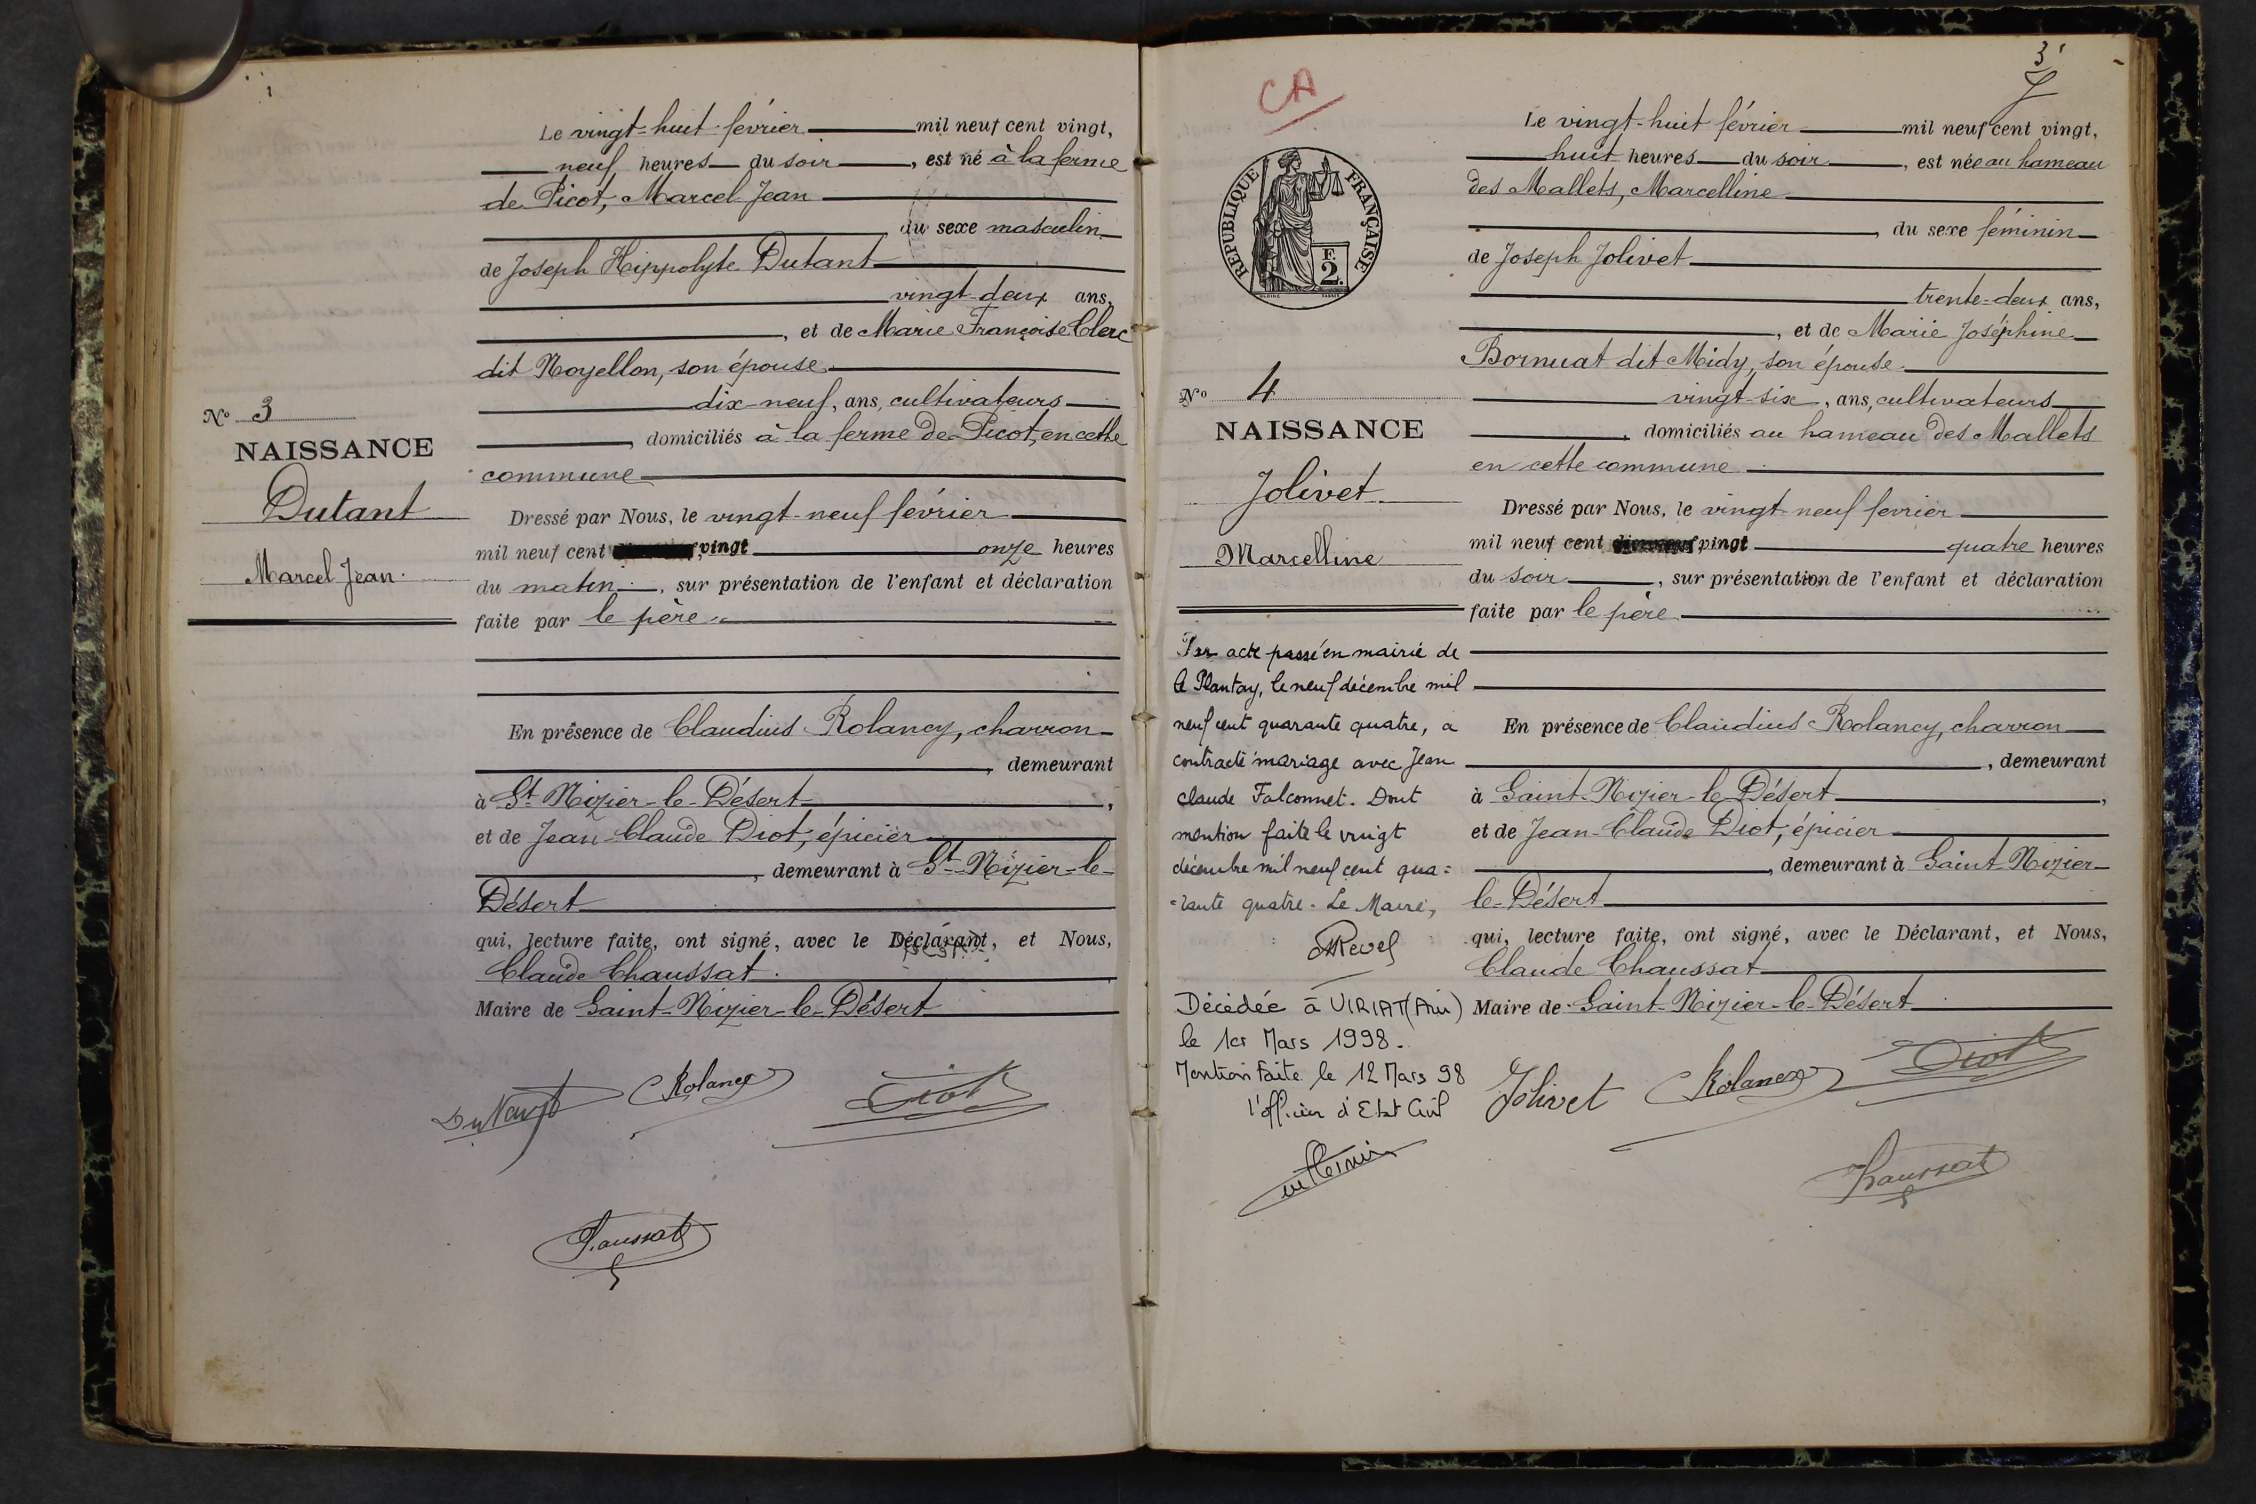 Le vingt-huit février mil neuf cent vingt,
neuf heures du soir, est né à la ferme
de Picot, Marcel Jean
du sexe masculin
de Joseph Hippolyte Dutant
vingt-deux ans,
, et de Marie Françoise Clerc
dit Noyellon, son épouse
dix-neuf, ans, cultivateurs
, domiciliés à la ferme de Picot, en cette
commune
No 3
NAISSANCE
Dutant
Marcel Jean
Dressé par Nous, le vingt-neuf février
mil neuf cent vingt onze heures
du matin, sur présentation de l'enfant et déclaration
faite par le père
En présence de Claudius Rolancy, charron
, demeurant
à St Nizier-le-Désert,
et de Jean-Claude Diot, épicier
, demeurant à St-Nizier-le-
Désert
qui, lecture faite, ont signé, avec le Déclarant, et Nous,
Claude Chaussat
Maire de Saint-Nizier-le-Désert
Rolancy
Diot
3
CA
RÉPUBLIQUE FRANÇAISE
F.
2.
Le vingt-huit février mil neuf cent vingt,
huit heures du soir, est née au hameau
des Mallets, Marcelline
, du sexe féminin
de Joseph Jolivet
trente-deux ans,
, et de Marie Joséphine
Bornuat dit Midy, son épouse
vingt-six, ans, cultivateurs
, domiciliés au hameau des Mallets
en cette commune
No 4
NAISSANCE
Jolivet
Marcelline
Dressé par Nous, le vingt-neuf février
mil neuf cent vingt quatre heures
du soir, sur présentation de l'enfant et déclaration
faite par le père
En présence de Claudius Rolancy, charron
, demeurant
à Saint-Nizier-le-Désert,
et de Jean-Claude Diot, épicier
, demeurant à Saint-Nizier-
le-Désert
qui, lecture faite, ont signé, avec le Déclarant, et Nous,
Claude Chaussat
Maire de Saint-Nizier-le-Désert
Par acte passé en mairie de
le Plantay, le neuf décembre mil
neuf cent quarante quatre, a
contracté mariage avec Jean
claude Falconnet. Dont
mention faite le vingt
décembre mil neuf cent qua=
=rante quatre. Le Maire,
Revel
Décédée à VIRIAT (Ain)
le 1er Mars 1998.
Mention Faite le 12 Mars 98
l'officier d'Etat Civil
Jolivet
Rolancy
Diot
Chaussat